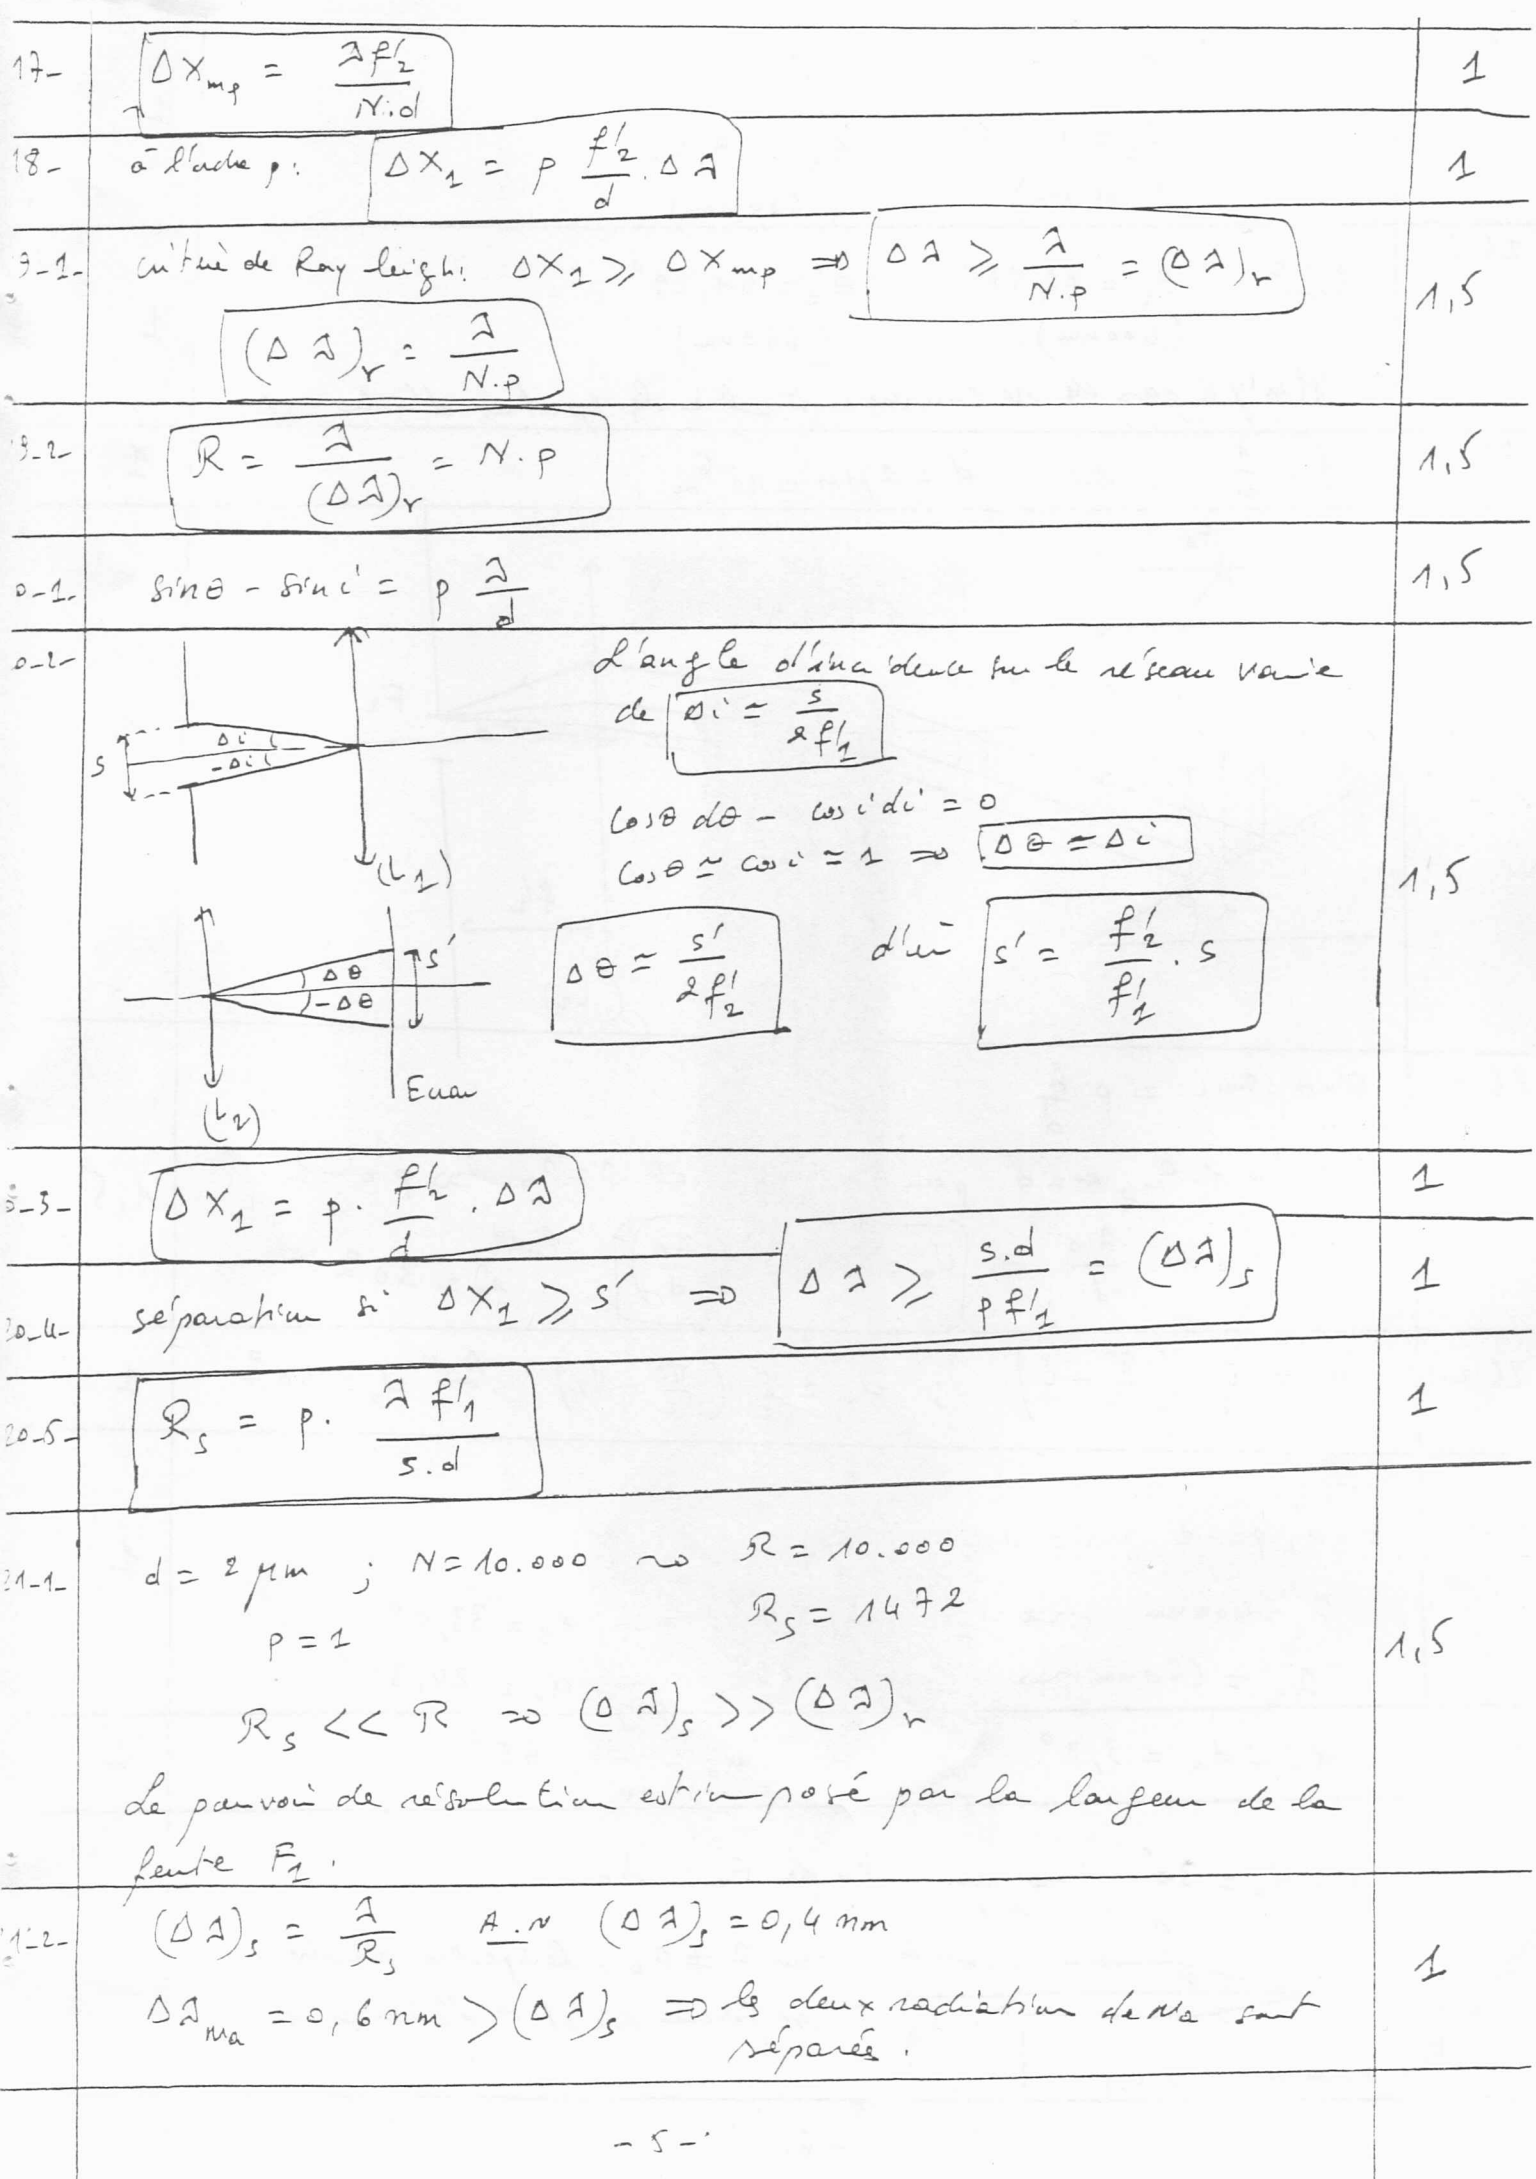 17- ΔX_mp = λf'2 / N.d 1
18- à l'ordre p: ΔX1 = p f'2/d . Δλ 1
9-1- critère de Rayleigh: ΔX1 ⩾ ΔX_mp ⇒ Δλ ⩾ λ/N.p = (Δλ)r 1,5
(Δλ)r = λ/N.p
9-2- R = λ/(Δλ)r = N.p 1,5
0-1- sinθ - sin i = p λ/d 1,5
0-2- L'angle d'incidence sur le réseau varie
de Δi ≃ s/2f'1
s Δi -Δi (L1)
cosθ dθ - cos i di = 0
cosθ ≃ cos i ≃ 1 ⇒ Δθ ≃ Δi 1,5
Δθ -Δθ s' Δθ ≃ s'/2f'2 d'où s' = f'2/f'1 . s
Ecran
(L2)
0-3- ΔX1 = p . f'2/d . Δλ 1
20-4- séparation si ΔX1 ⩾ s' ⇒ Δλ ⩾ s.d/p f'1 = (Δλ)s 1
20-5- Rs = p . λ f'1 / s.d 1
21-1- d = 2 μm ; N = 10.000 ⤳ R = 10.000
Rs = 1472
p = 1 1,5
Rs << R ⇒ (Δλ)s >> (Δλ)r
Le pouvoir de résolution est imposé par la largeur de la
fente F1.
1-2- (Δλ)s = λ/Rs A.N (Δλ)s = 0,4 nm 1
Δλ_Na = 0,6 nm > (Δλ)s ⇒ les deux radiation de Na sont
séparés.
- 5 -